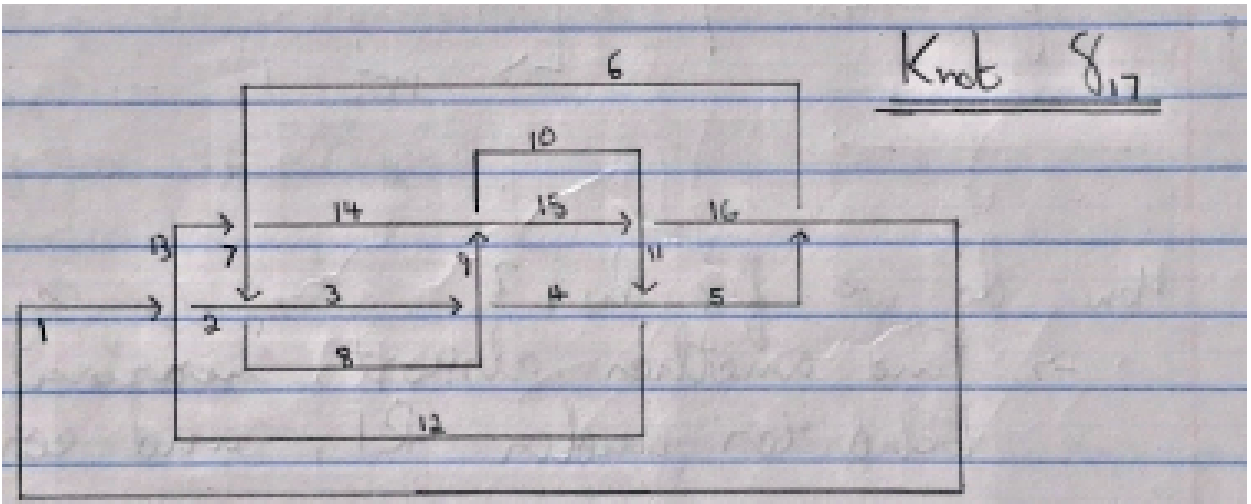 Knot 8₁₇
6
10
14 15 16
13 7 9 11
3 4 5
1 2
8
12